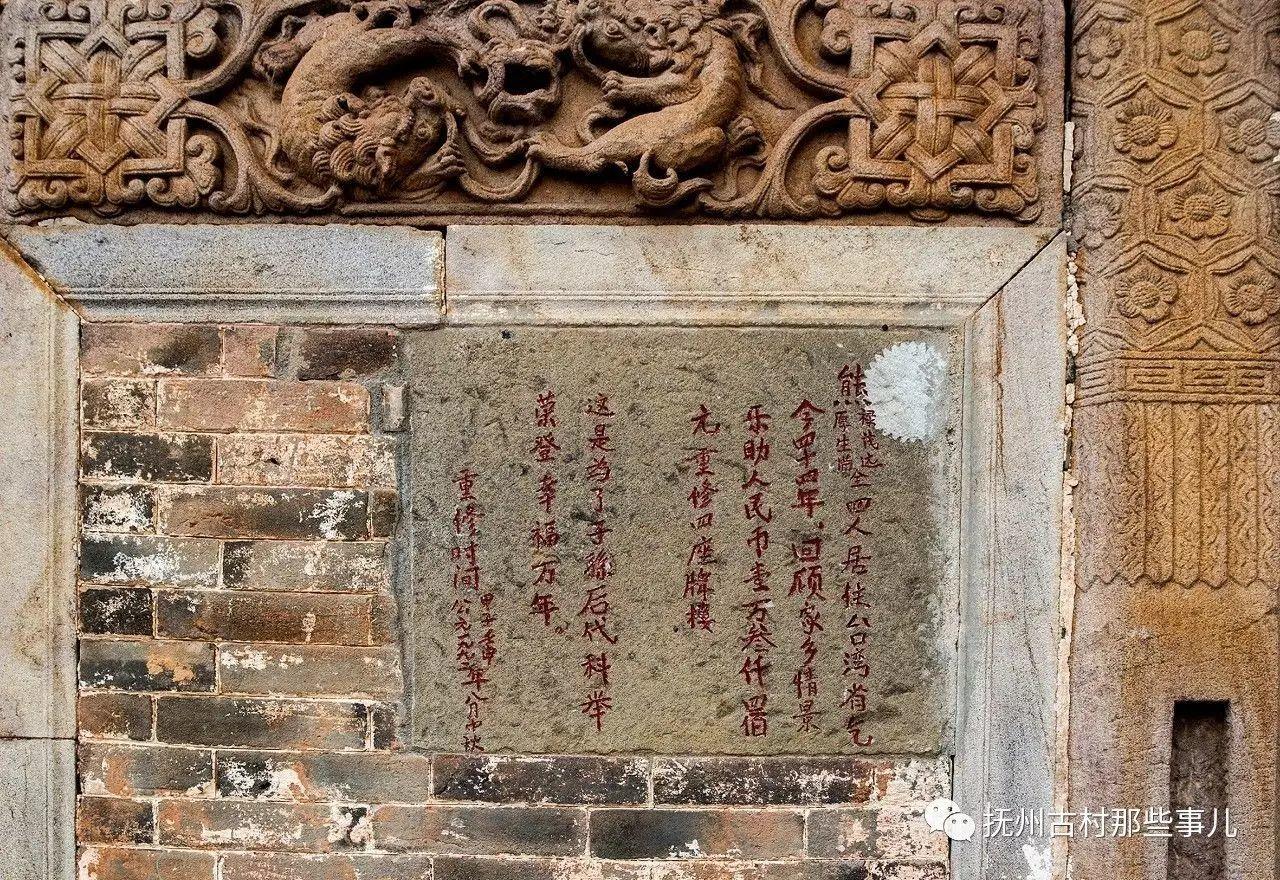 熊厚生四人居住台湾省乞
今四十四年，回顾家乡情景
乐助人民币壹万叁仟四佰
元重修四座牌楼
这是为了子孫后代科举
荣登幸福万年。
重修时间公元一九九二年八月中秋
抚州古村那些事儿